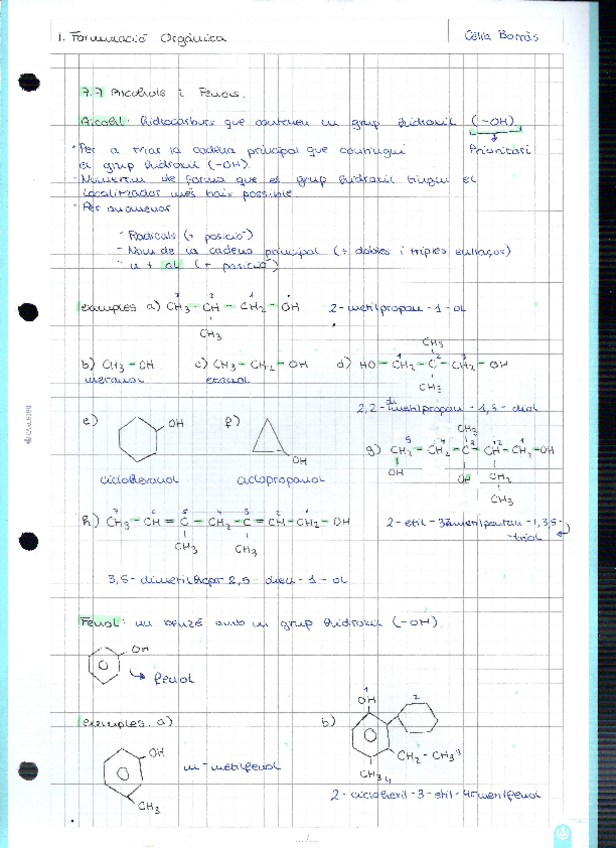 1. Formulació Orgànica
Cèlia Borràs
7.7 Alcohols i Fenols.
Alcohol: hidrocarburs que contenen un grup hidroxil (-OH).
Prioritari
· Per a triar la cadena principal que contingui
el grup hidroxil (-OH).
· Numerem de forma que el grup hidroxil tingui el
localitzador més baix possible.
· Per anomenar
- Radicals (+ posició)
- Nom de la cadena principal (+ dobles i triples enllaços)
- n + ol (+ posició)
exemples a) CH3 - CH - CH2 - OH 2-metilpropan-1-ol
3 2 1
CH3
b) CH3 - OH c) CH3 - CH2 - OH d) HO - CH2 - C - CH2 - OH
metanol etanol
CH3
CH3
2,2-dimetilpropan-1,3-diol
e) OH f) OH g) CH2 - CH2 - C - CH - CH2 - OH
5 4 3 2 1
CH3
OH OH CH2
CH3
ciclohexanol ciclopropanol
h) CH3 - CH = C - CH2 - C = CH - CH2 - OH
CH3 CH3
2-etil-3-metilpentan-1,3,5-
-triol
3,5-dimetilhept-2,5-dien-1-ol
Fenol: un benzè amb un grup hidroxil (-OH).
OH
fenol
exemples. a) b)
OH
CH3
m-metilfenol
1
OH
2
CH2 - CH3 3
CH3 4
2-ciclohexil-3-etil-4-metilfenol
.../...